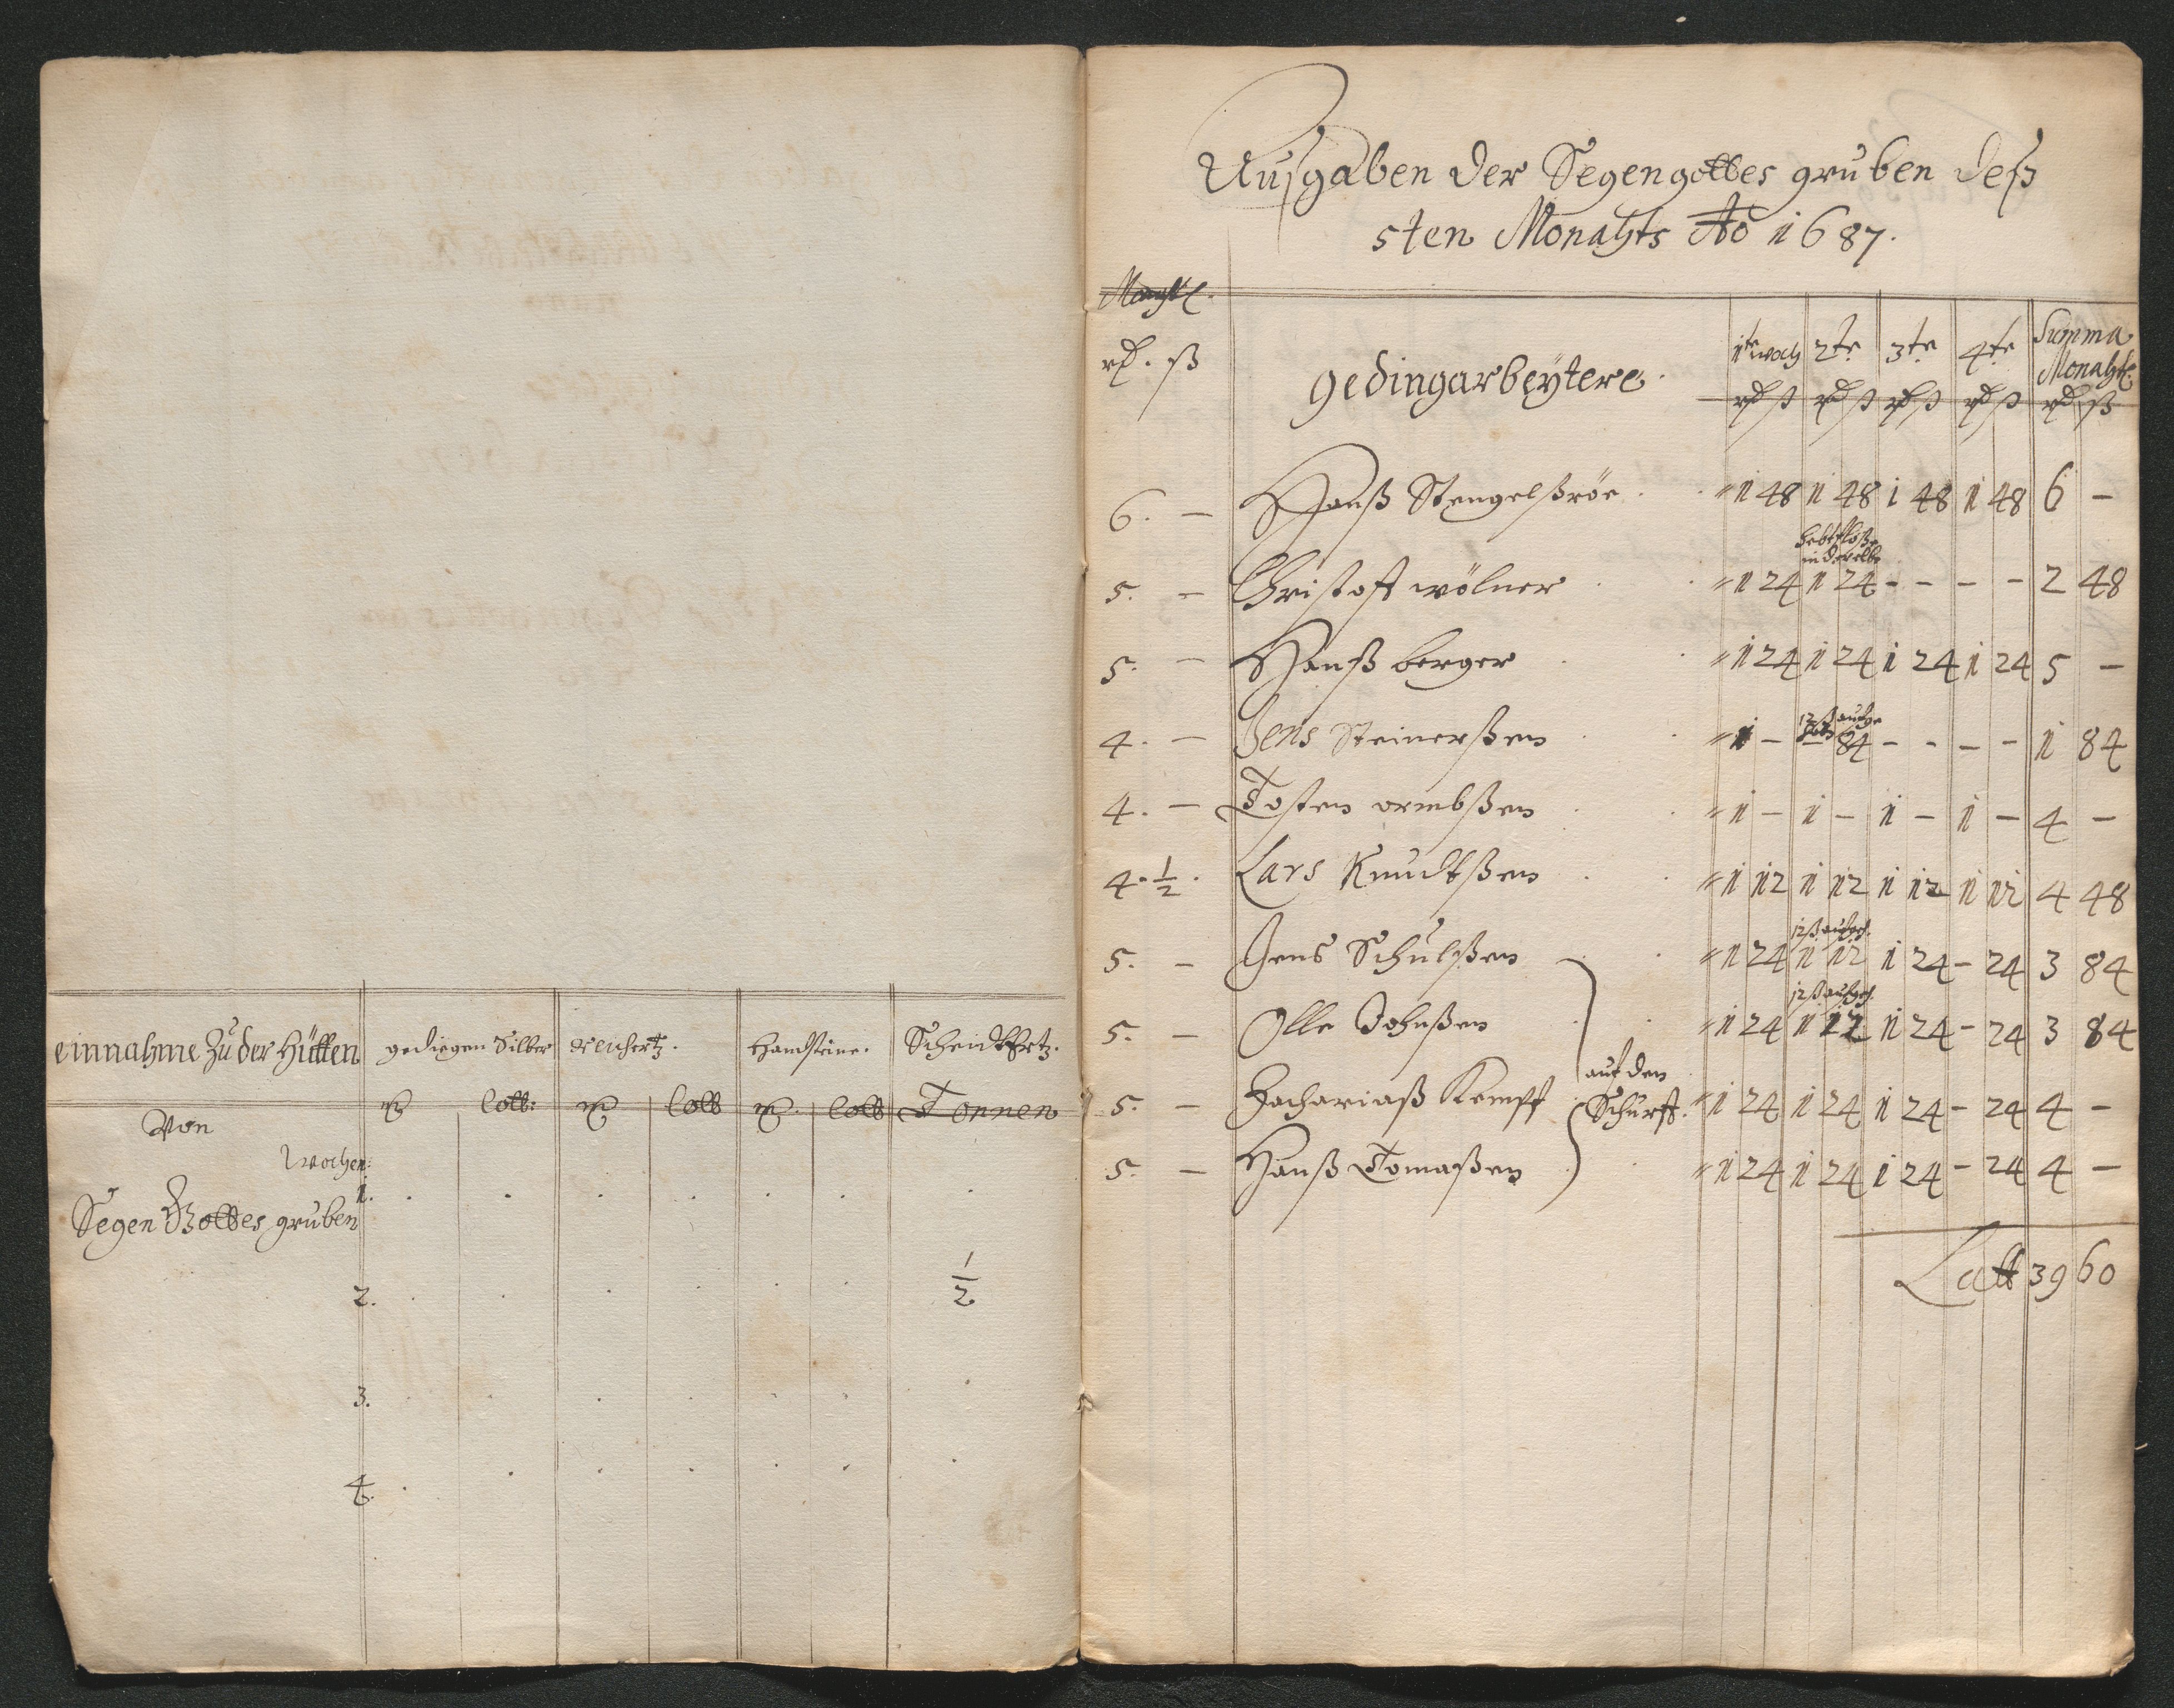 einnahme Zu der Hütten | gediegen Silber | reichertz. | Handsteine. | Scheidtertz.
Von | | loth: | | loth | | loth | Tonnen
Wochen:
1. . . . . . . .
Segen Gottes gruben
2. . . . . . . 1/2
3. . . . . . . .
4. . . . . . . .
Ausgaben der Segengottes gruben deß
5ten Monahts Ao 1687.
rd. ß | gedingarbeÿtere. | 1te woch | 2te | 3te | 4te | Summa
Monahtl.
rd ß | rd ß | rd ß | rd ß | rd ß
6. — Hanß Stengelßröe . . 1 48 1 48 1 48 1 48 6 —
5. — Christoff wölner . . 1 24 1 24 - - - - 2 48
5. — Hanß berger . . 1 24 1 24 1 24 1 24 5 —
12 ß aufge
4. — Jens Steinerßen . . 1 — — 84 - - - - 1 84
4. — Tosten ormbßen . . 1 — 1 — 1 — 1 — 4 —
4. 1/2. Lars Knudtßen . . 1 12 1 12 1 12 1 12 4 48
12 ß aufgeh.
5. — Jens Schulßen . 1 24 1 12 1 24 - 24 3 84
12 ß aufgeh.
5. — Olle Johnßen . 1 24 1 12 1 24 - 24 3 84
auf den
5. — Zachariaß Kempff . Schurff. 1 24 1 24 1 24 - 24 4 —
5. — Hanß Tomaßen . 1 24 1 24 1 24 - 24 4 —
Latt 39 60